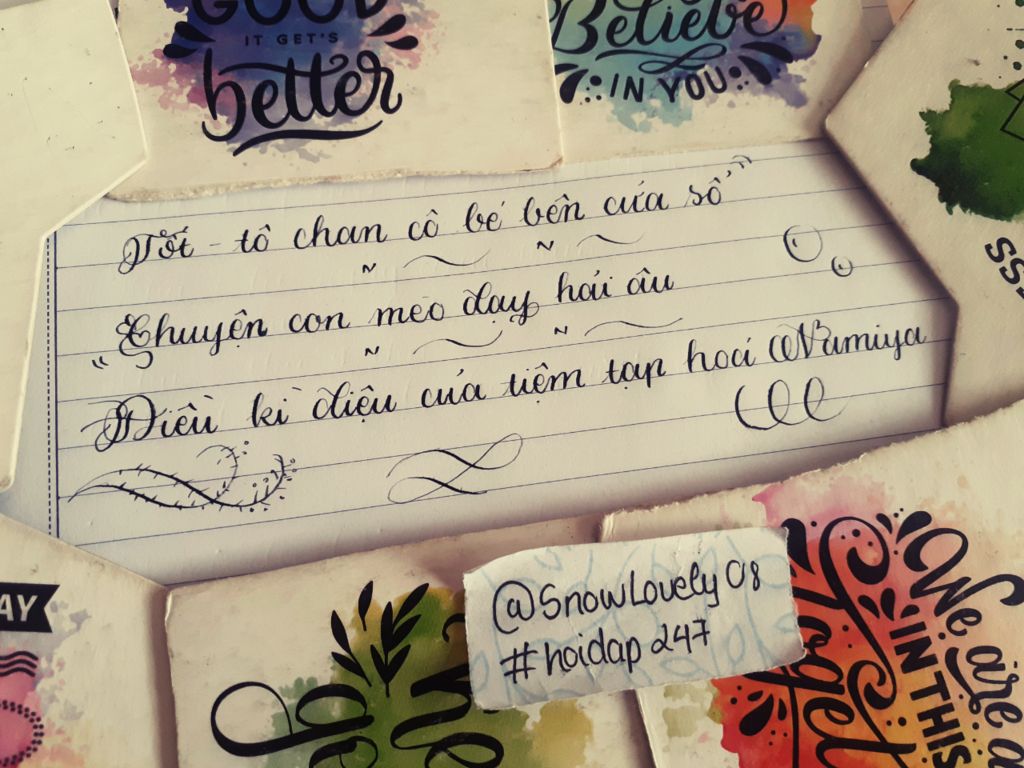 GOOD
IT GET'S
better
Believe
IN YOU
Tốt-tô chan cô bé bên cửa sổ"
"Chuyện con mèo dạy hải âu
Điều kì diệu của tiệm tạp hoá Namiya
@SnowLovely08
#hoidap247
We are a
IN THIS
Toget
AY